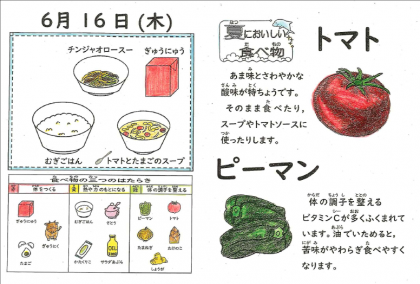 6月16日(木)
チンジャオロースー
ぎゅうにゅう
むぎごはん
トマトとたまごのスープ
食べ物の三つのはたらき
体をつくる
熱や力のもとになる
体の調子を整える
ぎゅうにゅう
ぎゅうにく
たまご
むぎごはん
かたくりこ
サラダあぶら
OIL
ピーマン
トマト
たまねぎ
たけのこ
しょうが
夏においしい
食べ物
トマト
あま味とさわやかな
酸味が特ちょうです。
そのまま食べたり、
スープやトマトソースに
使ったりします。
ピーマン
体の調子を整える
ビタミンCが多くふくまれて
います。油でいためると、
苦味がやわらぎ食べやすく
なります。